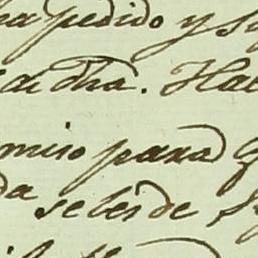 ha pedido y s
dha. Hal
miso para q
da se les de